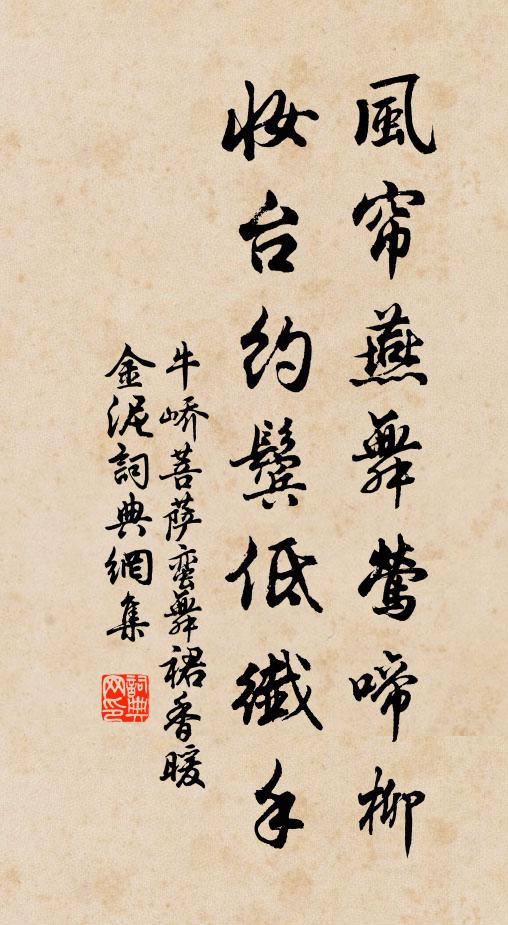 風帘燕舞鶯啼柳
妝台約鬢低纖手
牛嶠菩薩蠻舞裙香暖
金泥詞典網集
詞典網印